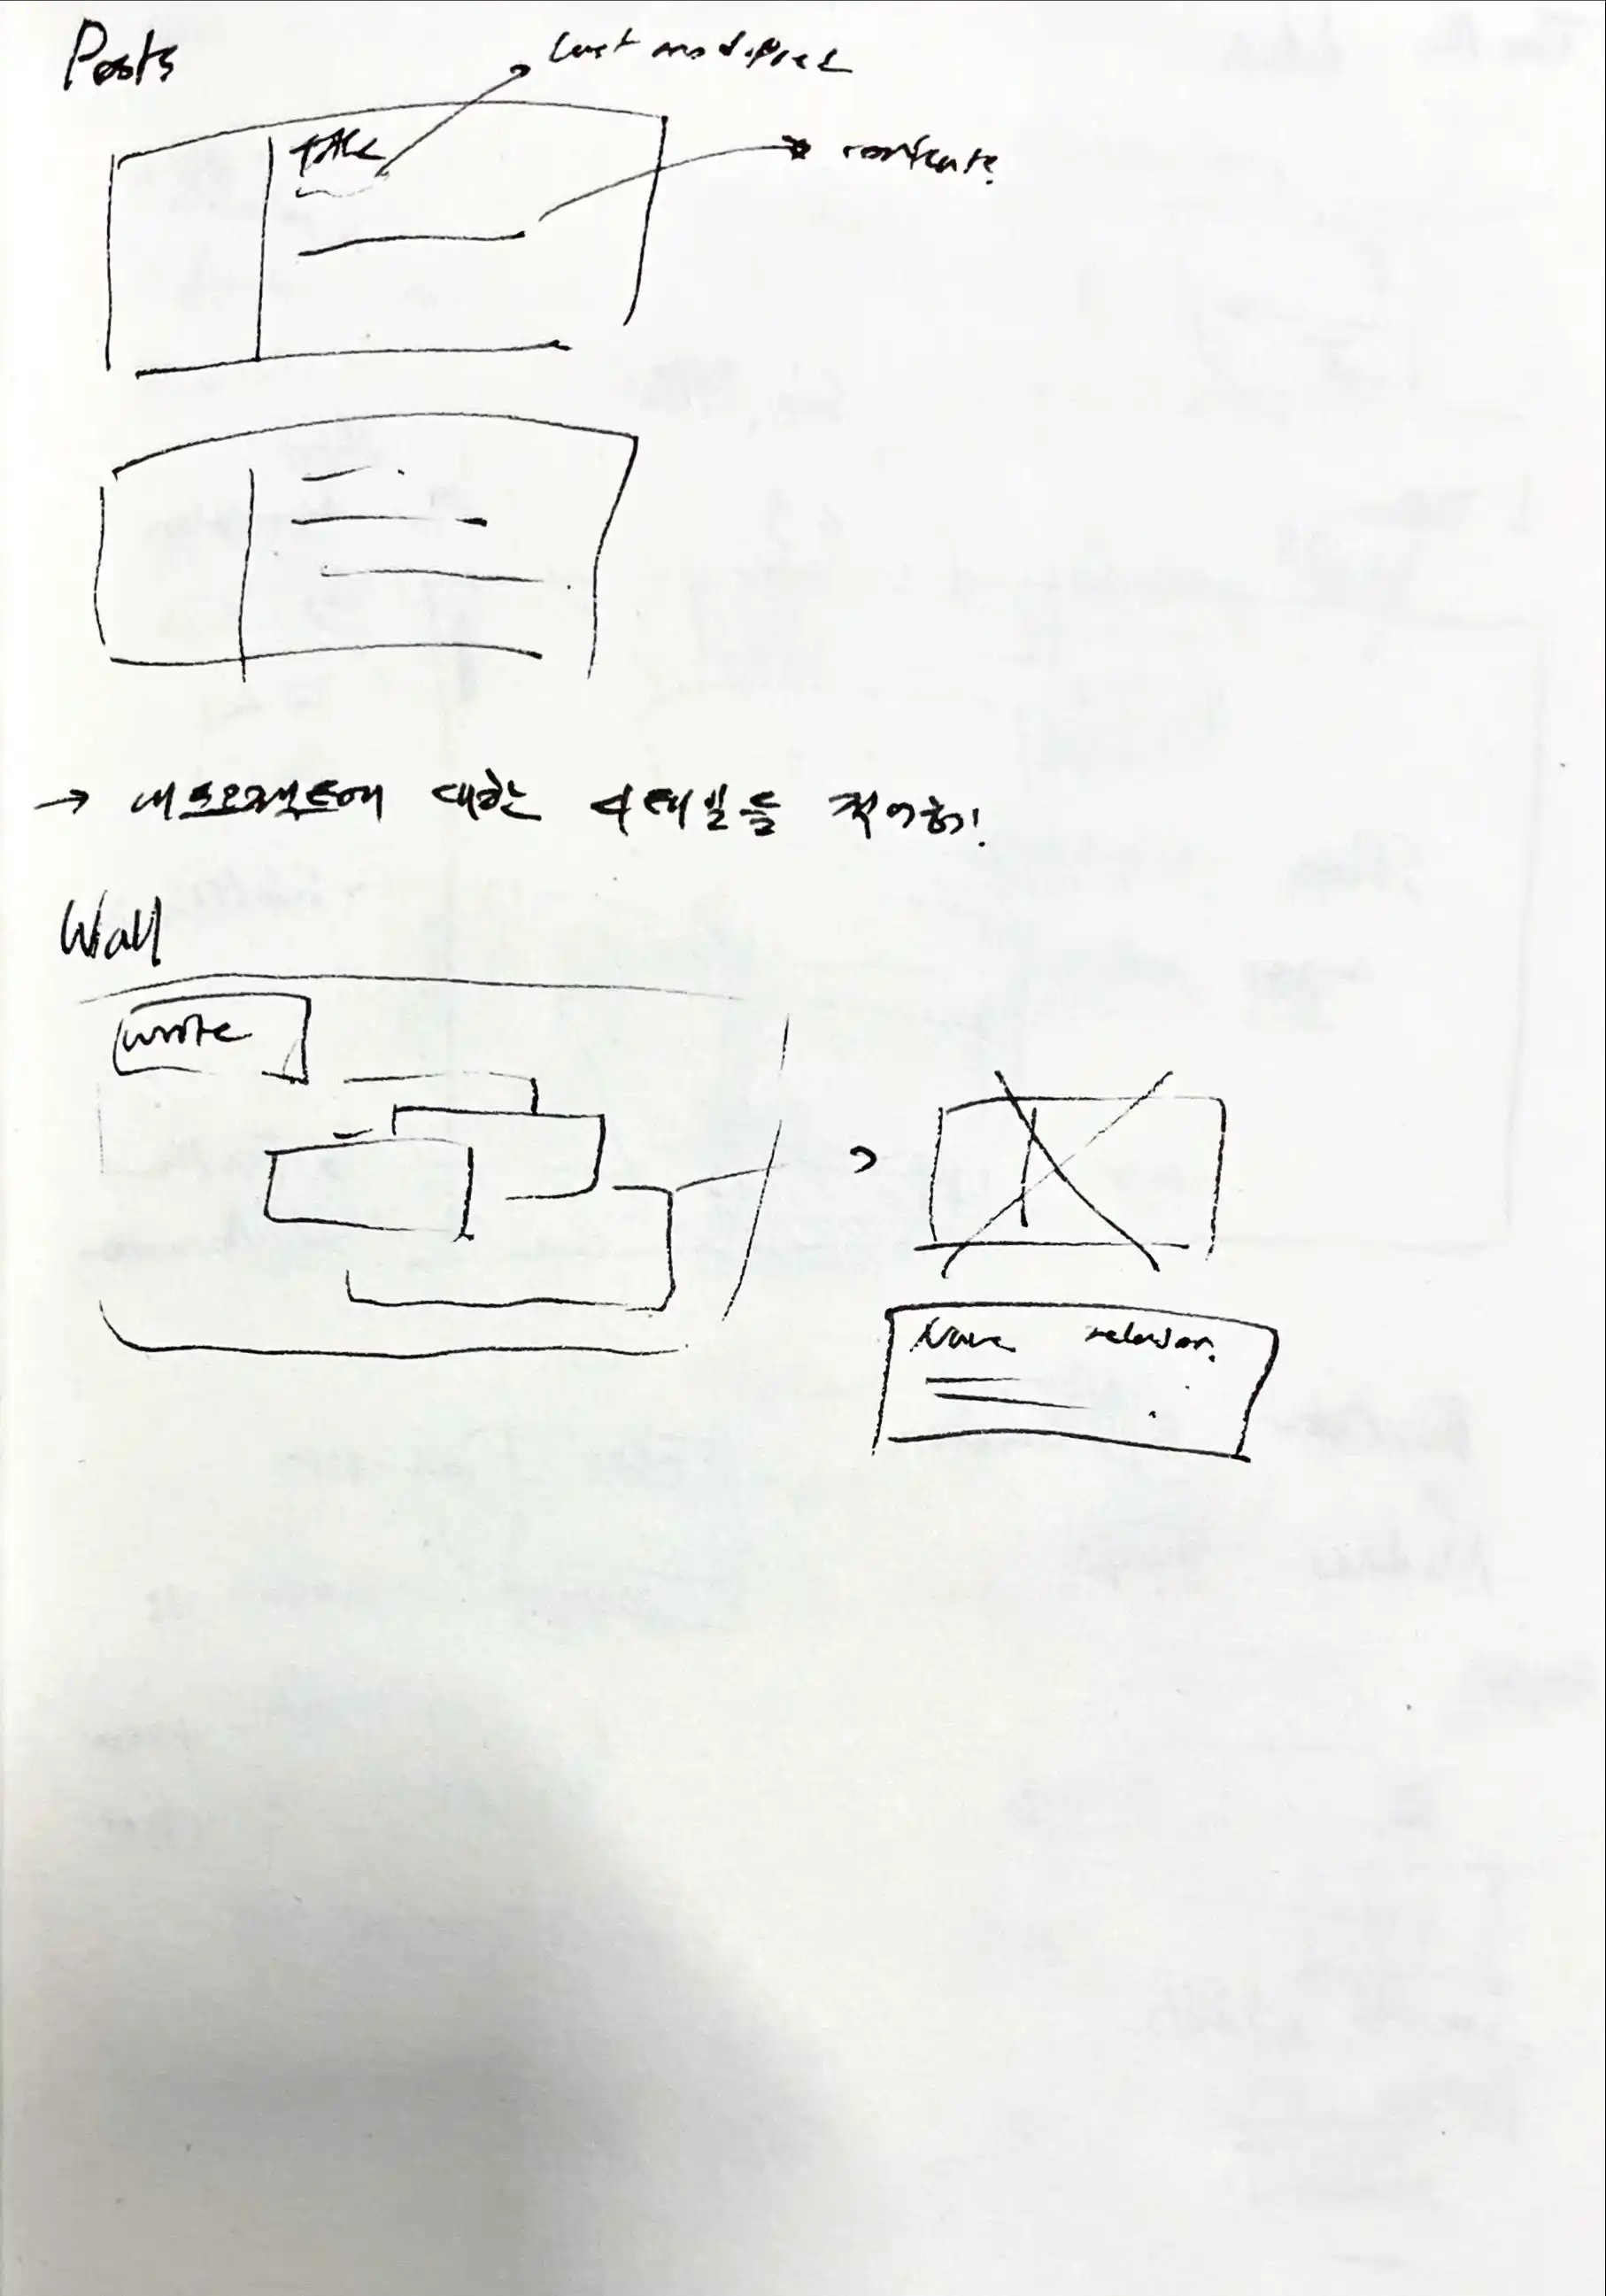 Posts
last modified
title
contents.
→ 내 프로젝트에 대한 디테일을 적어놓기!
Wall
wrote
Name relation.